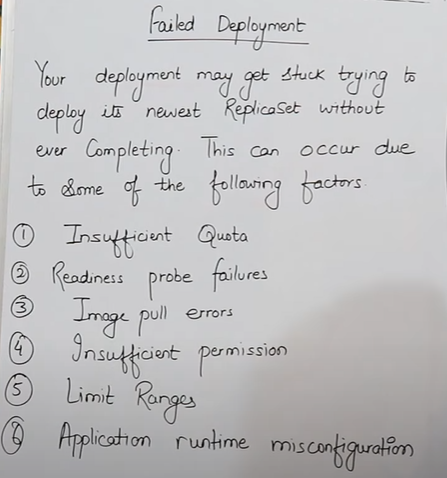 Failed Deployment
Your deployment may get stuck trying to
deploy its newest ReplicaSet without
ever Completing. This can occur due
to some of the following factors.
① Insufficient Quota
② Readiness probe failures
③ Image pull errors
④ Insufficient permission
⑤ Limit Ranges
⑥ Application runtime misconfiguration